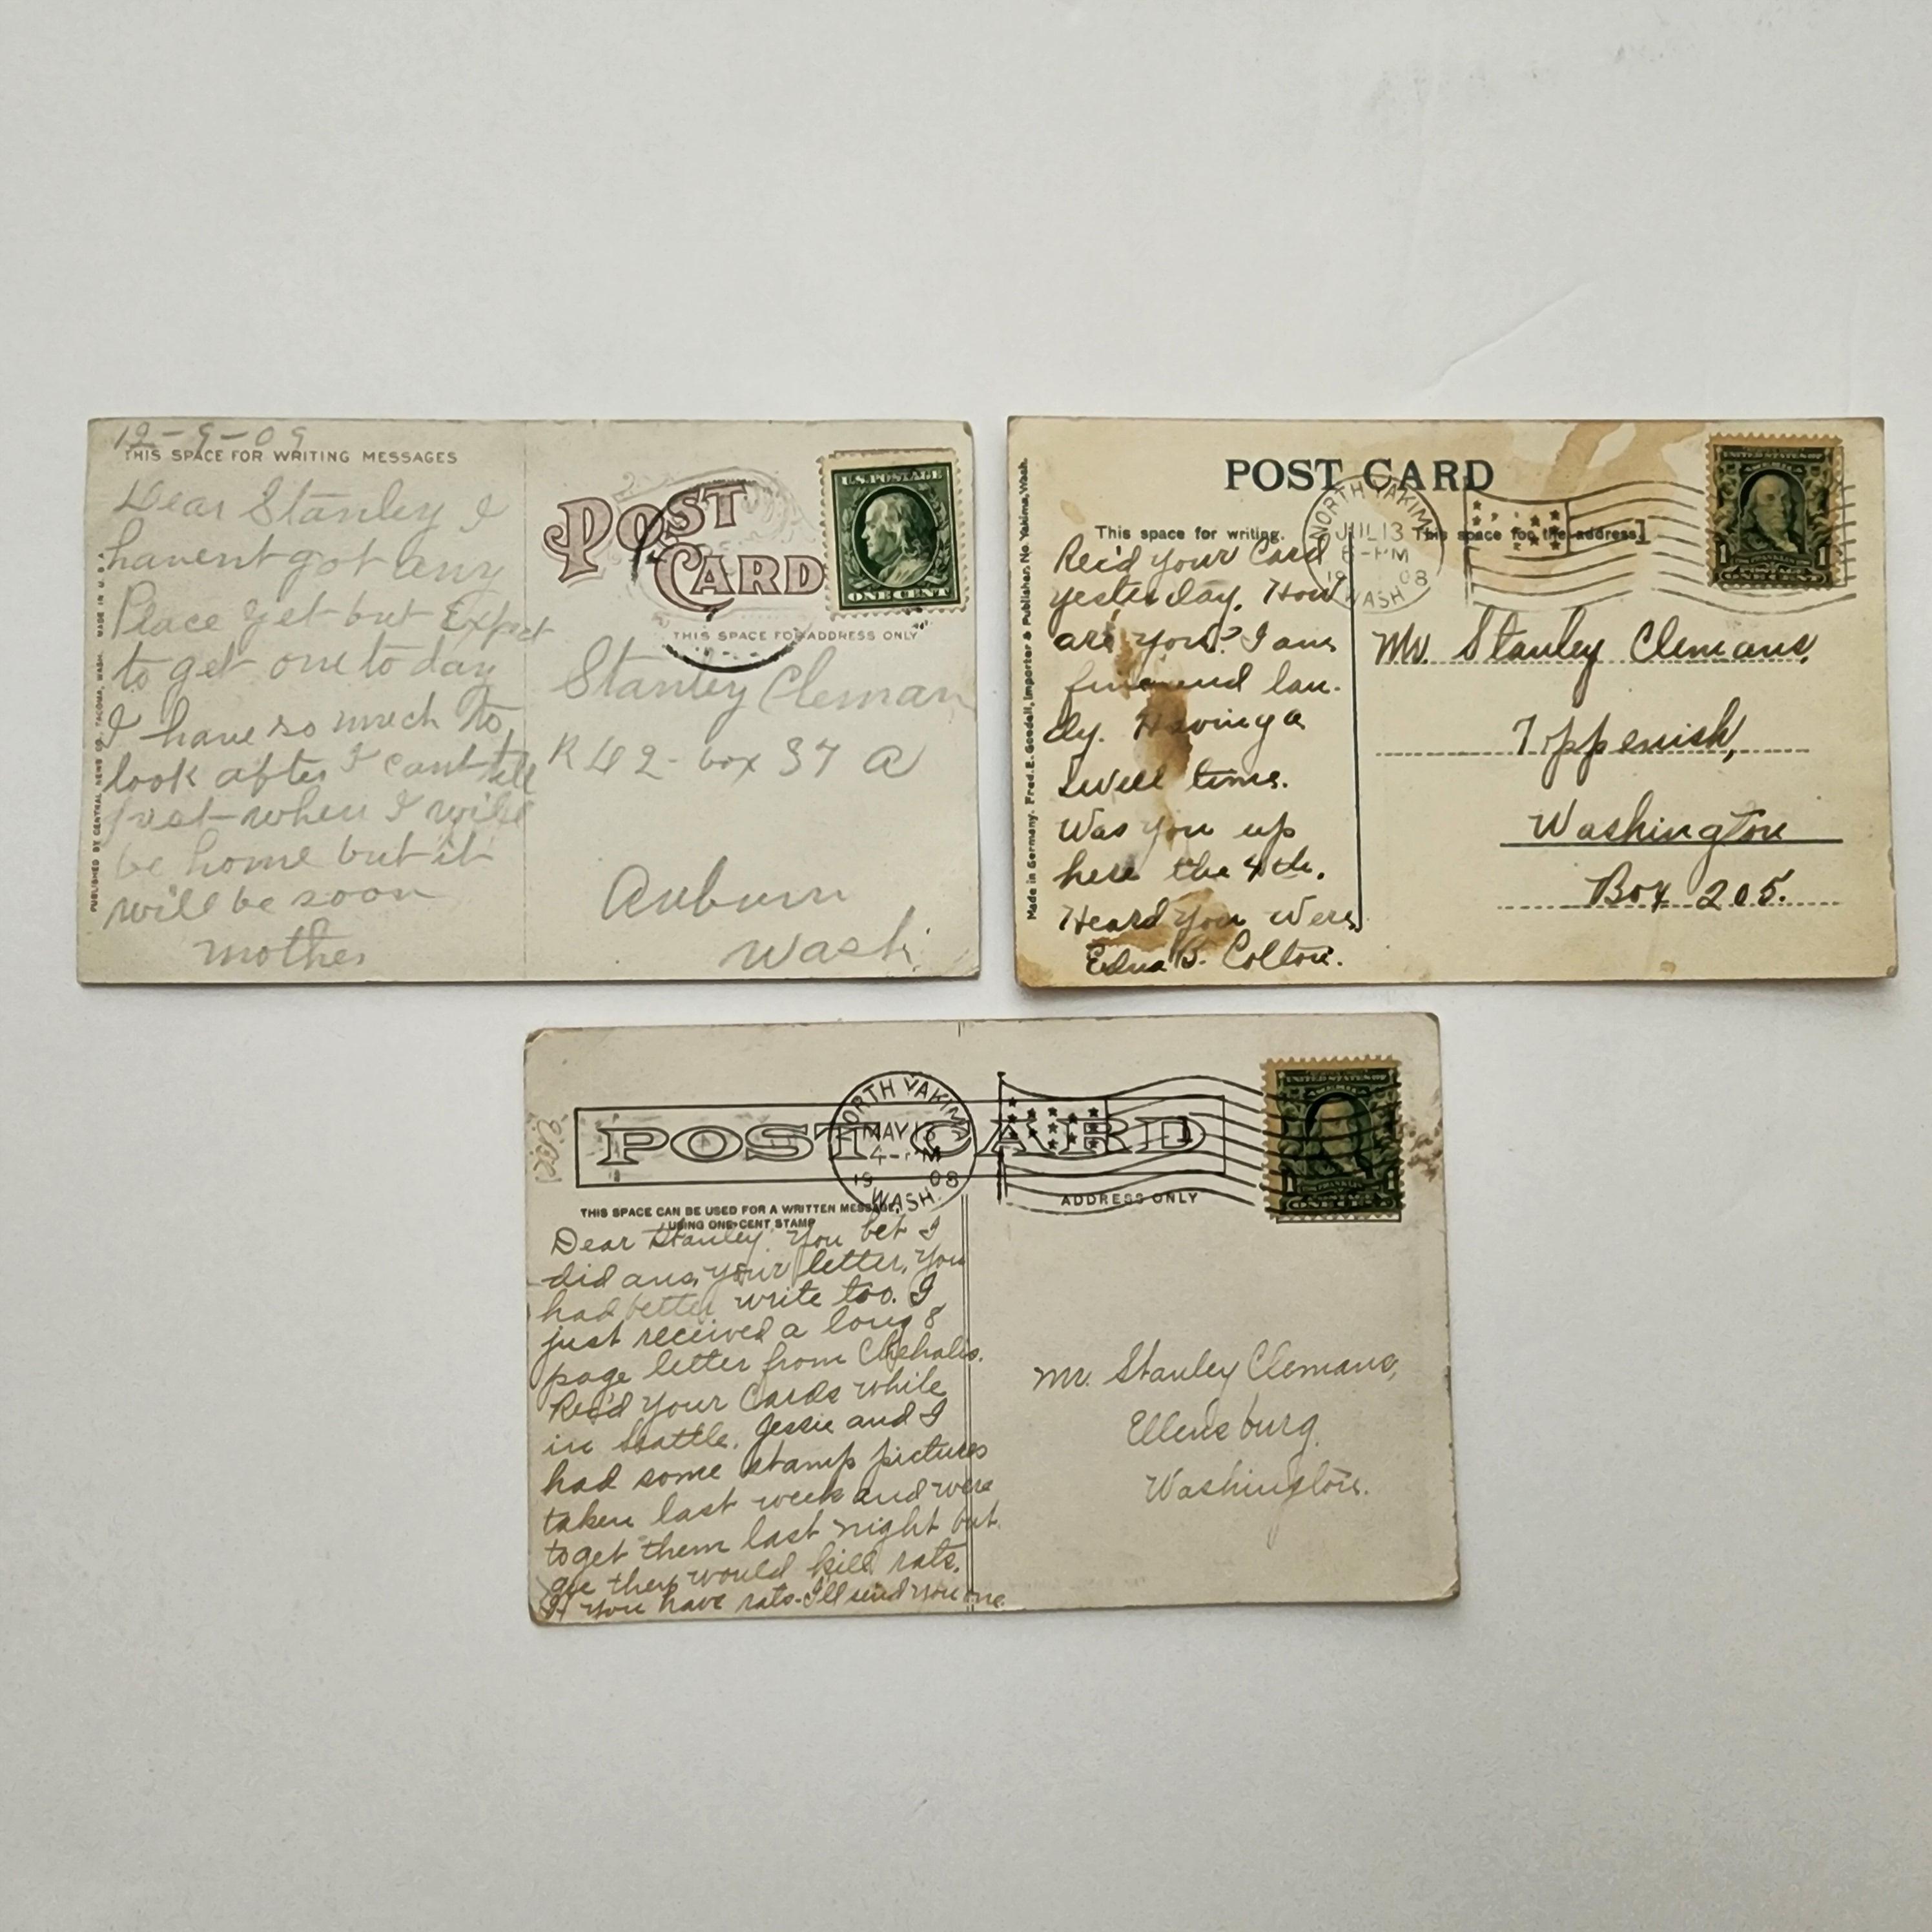 12-9-09
THIS SPACE FOR WRITING MESSAGES
Dear Stanley I
havent got any
Place yet but Expect
to get one to day
I have so much To
look after I cant tell
just when I will
be home but it
will be soon
mother
PUBLISHED BY CENTRAL NEWS CO. TACOMA, WASH. MADE IN U.S.A.
POST
CARD
U.S. POSTAGE
ONE CENT
THIS SPACE FOR ADDRESS ONLY
Stanley Cleman
R 2 - box 37 A
Auburn
Wash.
Made in Germany. Fred. E. Goodall, Importer & Publisher, No. Yakima, Wash.
POST CARD
This space for writing.
This space for the address.
NORTH YAKIMA
JUL 13
6-PM
1908
WASH
UNITED STATES OF
AMERICA
1 FRANKLIN 1
ONE CENT
Rec'd your Card
yesterday. How
are you? I am
fine and lan-
dy. Having a
swell time.
Was you up
here the 4th.
Heard you were.
Edna B. Colton.
Mr. Stanley Clemans,
Toppenish,
Washington
Box 205.
POST CARD
NORTH YAKIMA
MAY 13
4-PM
1908
WASH.
UNITED STATES OF
AMERICA
1 FRANKLIN 1
ONE CENT
THIS SPACE CAN BE USED FOR A WRITTEN MESSAGE,
USING ONE-CENT STAMP
ADDRESS ONLY
Dear Stanley You bet I
did ans. your letter. You
had better write too. I
just received a long 8
page letter from Chehalis.
Rec'd your Cards while
in Seattle. Jessie and I
had some stamp pictures
taken last week and were
to get them last night but
gee they would kill rats.
If you have rats-I'll send you one
Mr. Stanley Clemans,
Ellensburg,
Washington.